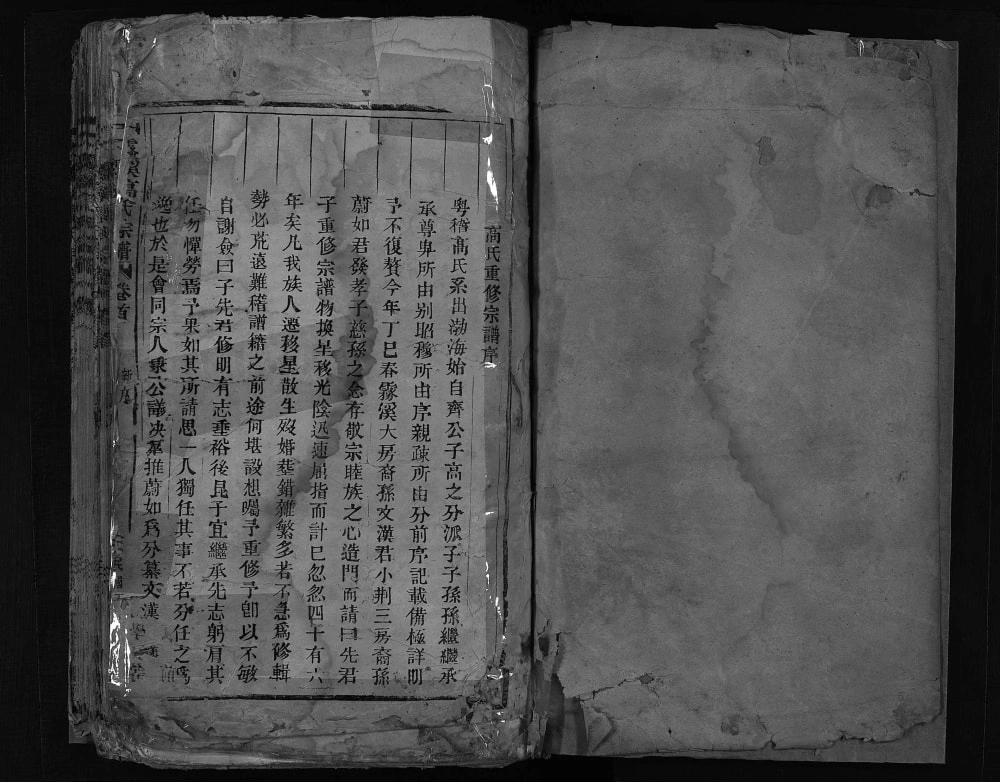 高氏重修宗譜序
粵稽高氏系出渤海始自齊公子高之分派子子孫孫繼繼承
承尊卑所由別昭穆所由序親疎所由分前序記載備極詳明
予不復贅今年丁巳春霞溪大房裔孫文漢君小荆三房裔孫
蔚如君發孝子慈孫之念存敬宗睦族之心造門而請曰先君
子重修宗譜物換星移光陰迅速屈指而計已忽忽四十有六
年矣凡我族人遷移星散生歿婚塟錯雜繁多若不急爲修輯
勢必荒遠難稽譜籍之前途何堪設想囑予重修予卽以不敏
自謝僉曰子先君修明有志垂裕後昆子宜繼承先志躬肩其
任勿憚勞焉予果如其所請思一人獨任其事不若分任之爲
逸也於是會同宗人秉公議决羣推蔚如爲分纂文漢
溪高氏宗譜 卷首 新序